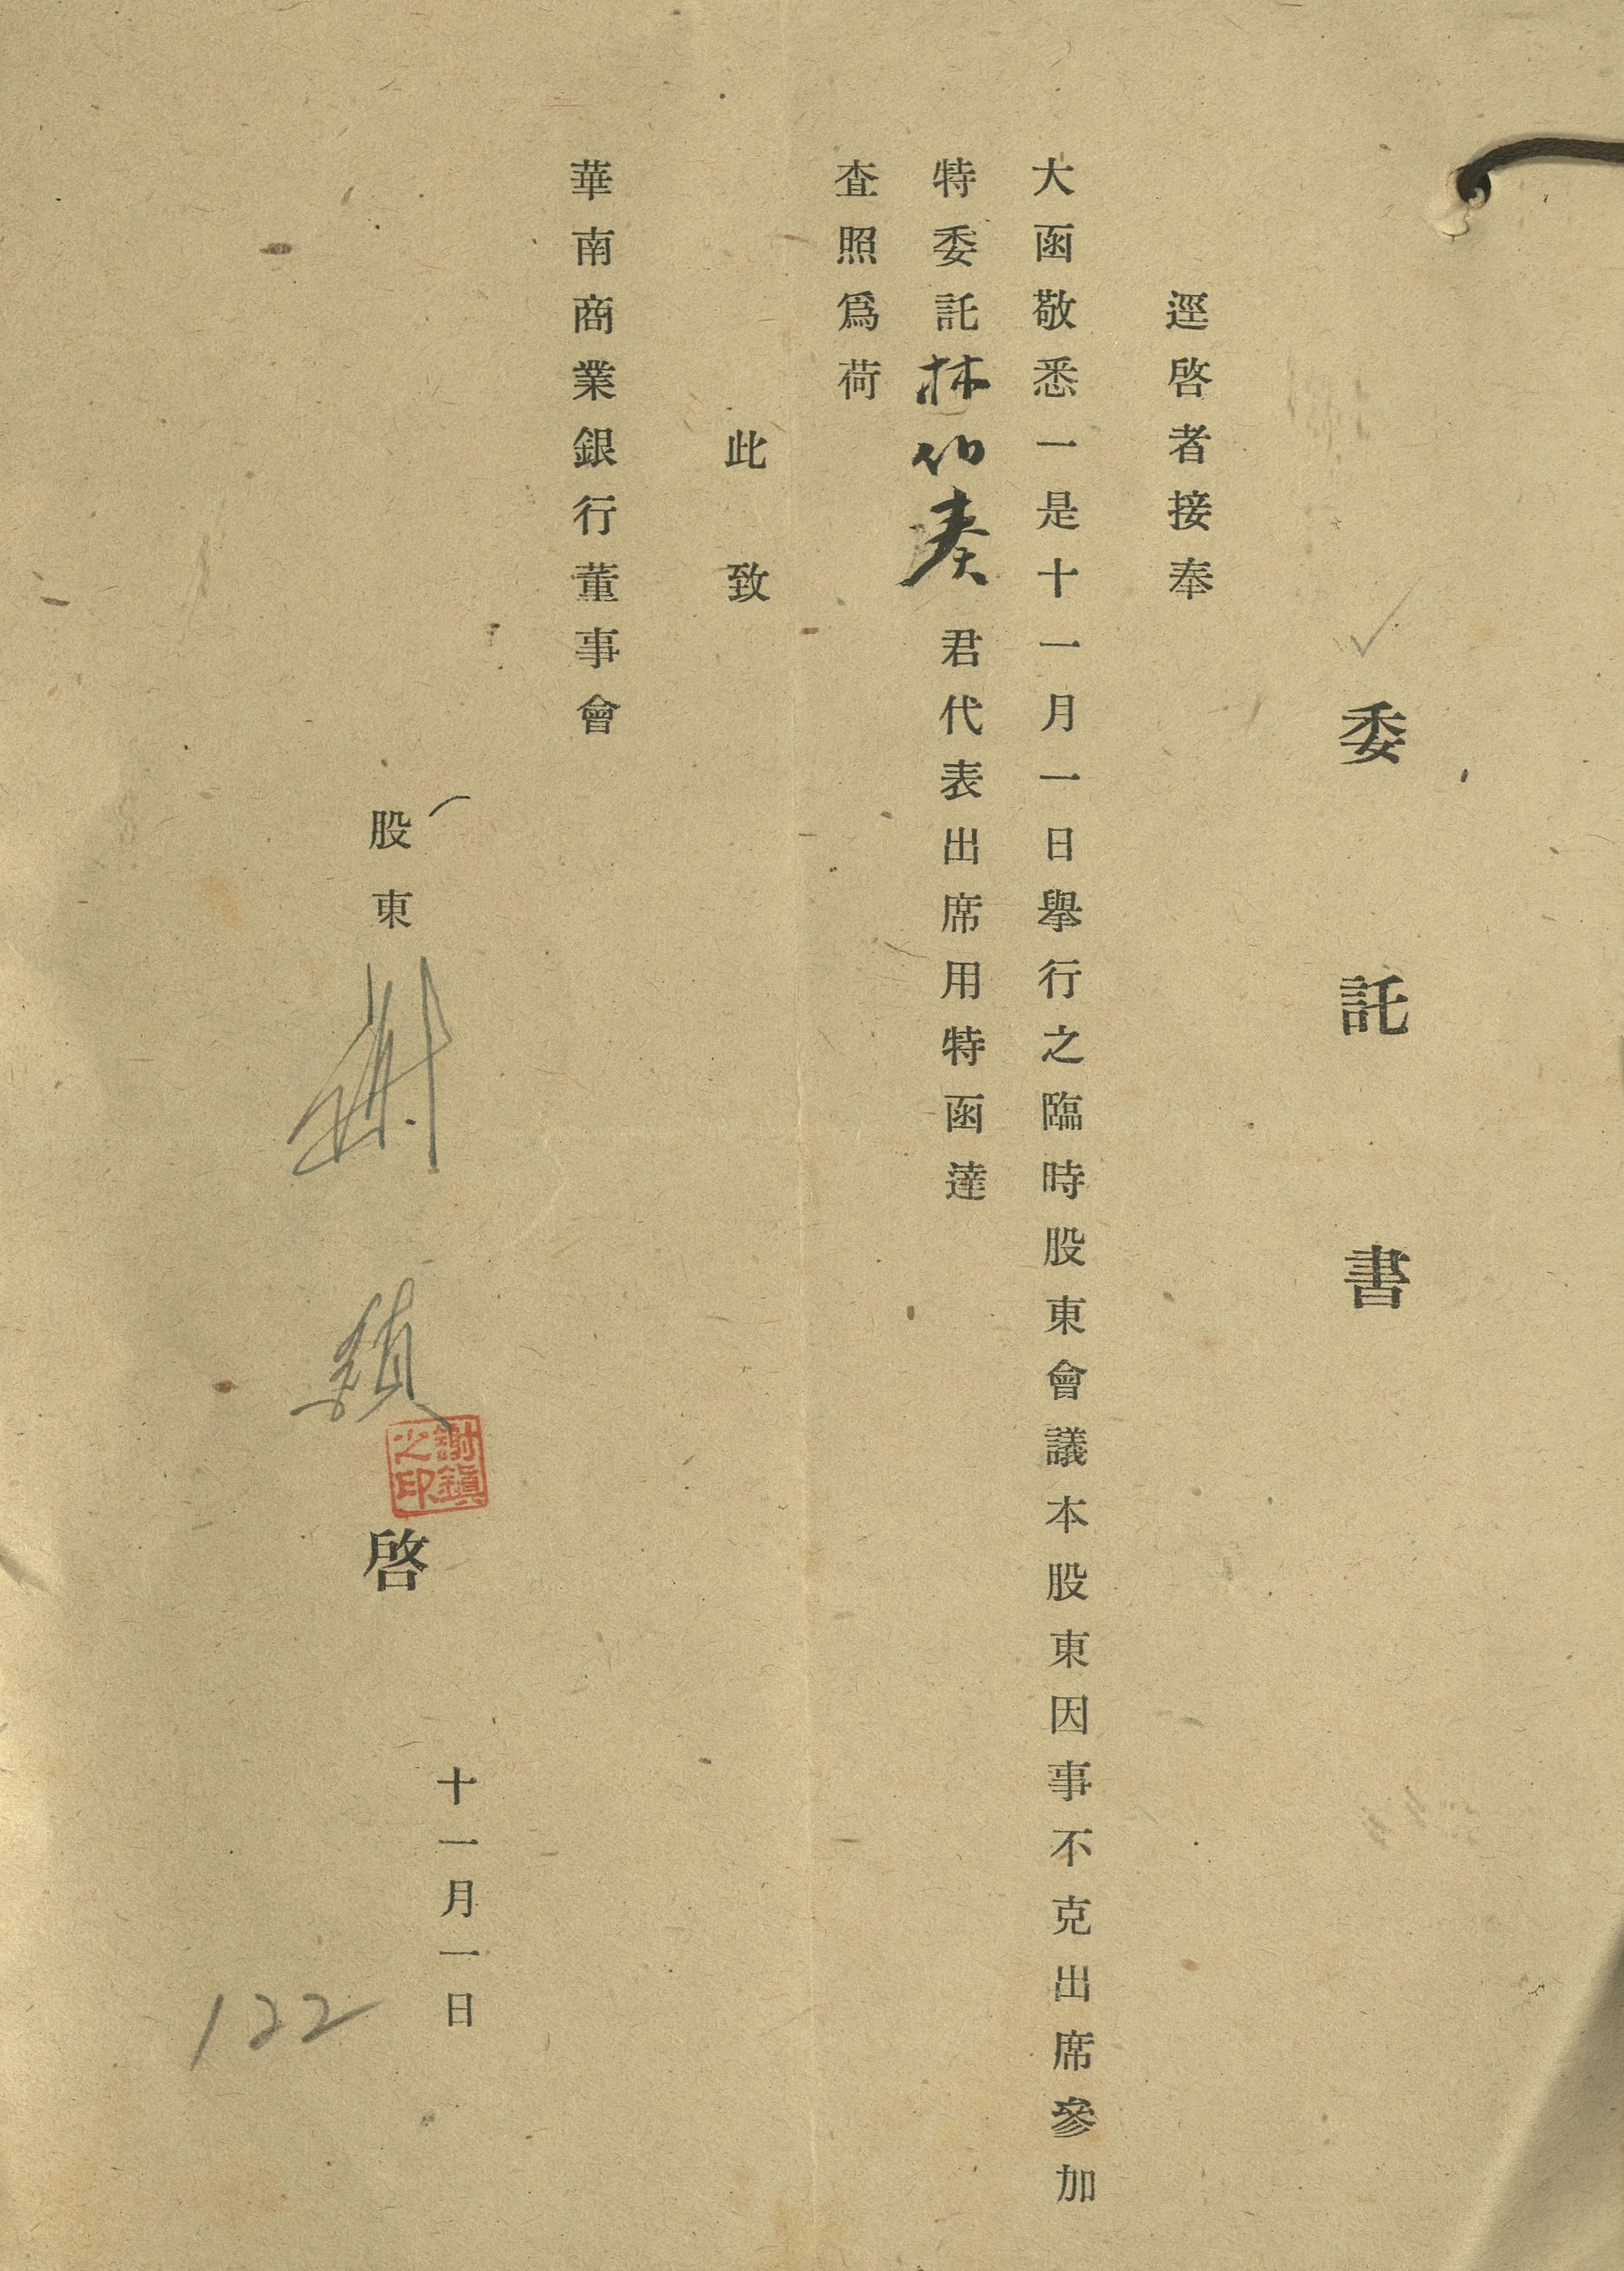 委託書
逕啓者接奉
大函敬悉一是十一月一日舉行之臨時股東會議本股東因事不克出席參加
特委託林伯奏君代表出席用特函達
查照爲荷
此致
華南商業銀行董事會
股東謝鎮啓
謝鎮之印
十一月一日
122